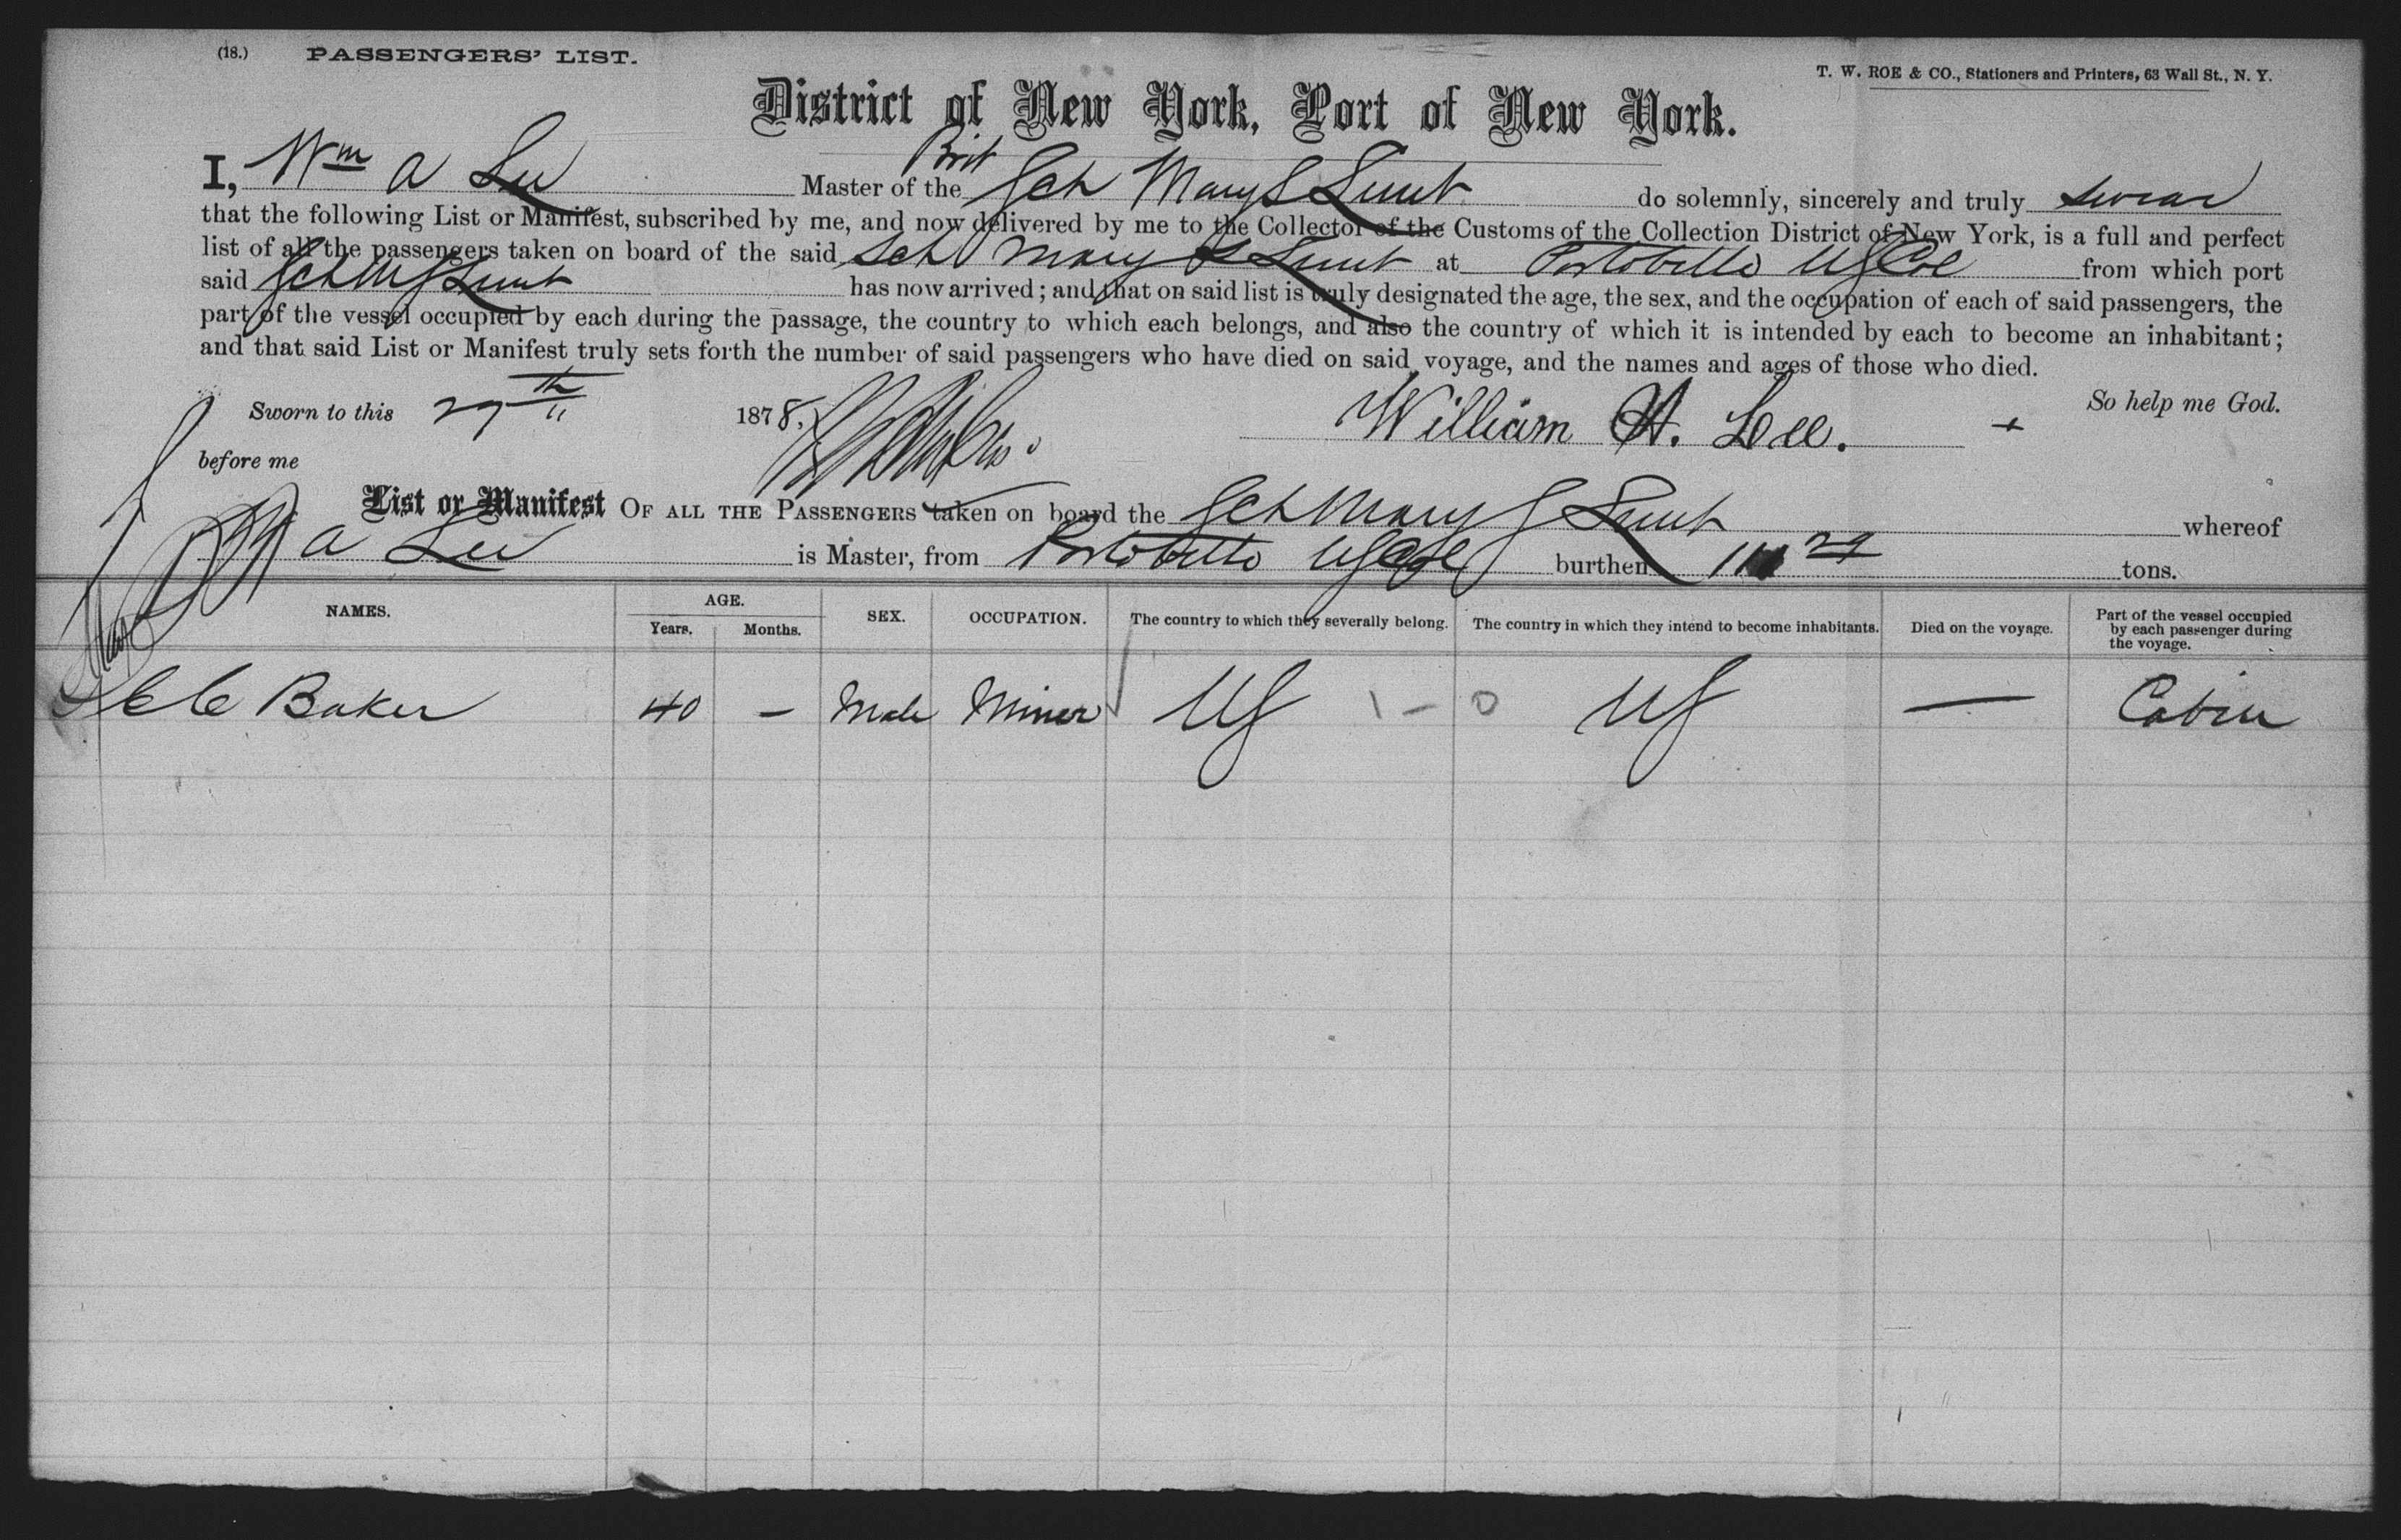 (18.) PASSENGERS' LIST.
T. W. ROE & CO., Stationers and Printers, 63 Wall St., N. Y.
District of New York, Port of New York.
I, Wm A Lee Master of the Brit Sch Mary S Lunt do solemnly, sincerely and truly swear
that the following List or Manifest, subscribed by me, and now delivered by me to the Collector of the Customs of the Collection District of New York, is a full and perfect
list of all the passengers taken on board of the said Sch Mary S Lunt at Portobello USCol from which port
said Sch M S Lunt has now arrived; and that on said list is truly designated the age, the sex, and the occupation of each of said passengers, the
part of the vessel occupied by each during the passage, the country to which each belongs, and also the country of which it is intended by each to become an inhabitant;
and that said List or Manifest truly sets forth the number of said passengers who have died on said voyage, and the names and ages of those who died.
Sworn to this 29th 1878, William A. Lee. + So help me God.
before me
List or Manifest OF ALL THE PASSENGERS taken on board the Sch Mary S Lunt whereof
W A Lee is Master, from Portobello USCol burthen tons.
NAMES. AGE. Years. Months. SEX. OCCUPATION. The country to which they severally belong. The country in which they intend to become inhabitants. Died on the voyage. Part of the vessel occupied by each passenger during the voyage.
C C Baker 40 — Male Miner US 1 – 0 US — Cabin